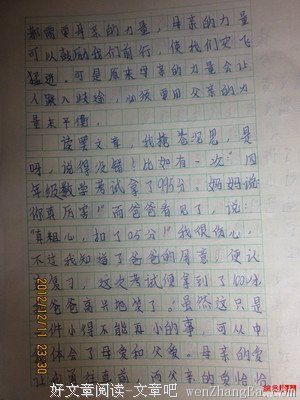 都需要母亲的力量，母亲的力量
可以鼓励我们前行，使我们突飞
猛进。可是原来母亲的力量会让
人跌入歧途，必须要用父亲的力
量来平衡。
读罢文章，我掩卷沉思，是
呀，说得没错！比如有一次，四
年级数学考试拿了99.5分。妈妈说
你真厉害！"而爸爸看见了，说：
"真粗心，扣了0.5分！"我很伤心，
不过我知道了爸爸的用意，便认
复习，这次考试便拿到了100分
爸爸高兴地笑了。虽然这只是
件小得不能再小的事，可从中
体会了母爱和父爱。母亲的爱
前，而父亲的爱恰恰
2012/12/11 23:30
好文章阅读-文章吧 wenZhangBa.com